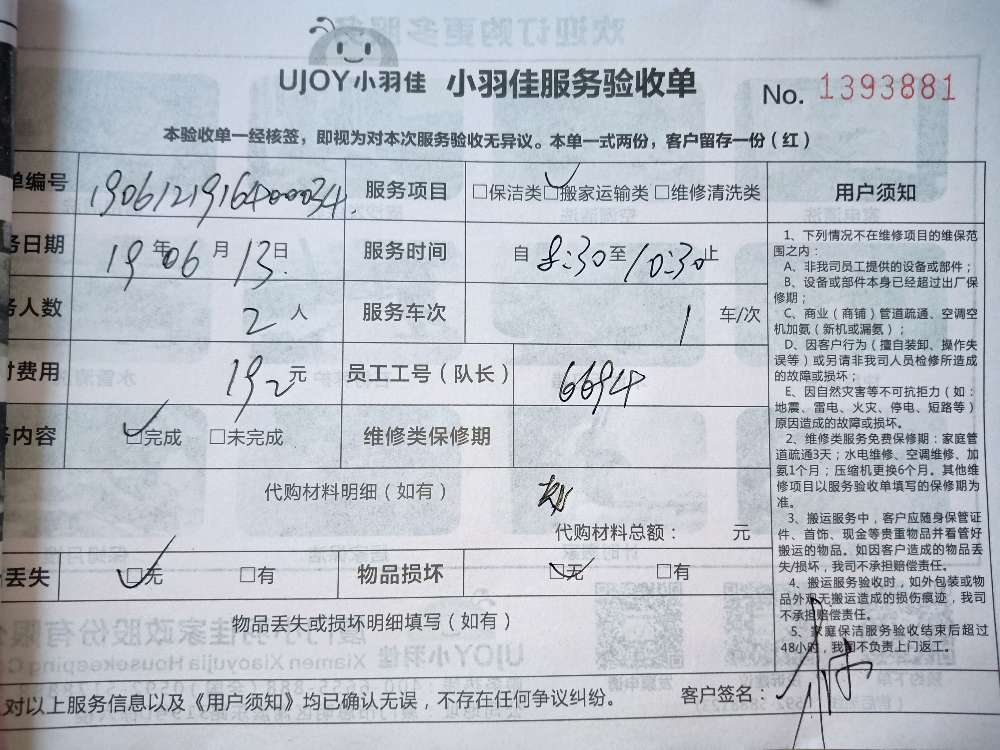 UJOY小羽佳 小羽佳服务验收单 No. 1393881
本验收单一经核签，即视为对本次服务验收无异议。本单一式两份，客户留存一份（红）
单编号 1906121916400034 服务项目 □保洁类 ☑搬家运输类 □维修清洗类
务日期 19年06月13日 服务时间 自8:30至10:30止
务人数 2人 服务车次 1车/次
付费用 192元 员工工号（队长） 6694
务内容 ☑完成 □未完成 维修类保修期
代购材料明细（如有）
代购材料总额： 元
丢失 ☑无 □有 物品损坏 ☑无 □有
物品丢失或损坏明细填写（如有）
对以上服务信息以及《用户须知》均已确认无误，不存在任何争议纠纷。 客户签名：
用户须知
1、下列情况不在维修项目的维保范
围之内：
A、非我司员工提供的设备或部件；
B、设备或部件本身已经超过出厂保
修期；
C、商业（商铺）管道疏通、空调空
机加氨（新机或漏氨）；
D、因客户行为（擅自装卸、操作失
误等）或另请非我司人员检修所造成
的故障或损坏；
E、因自然灾害等不可抗拒力（如：
地震、雷电、火灾、停电、短路等）
原因造成的故障或损坏。
2、维修类服务免费保修期：家庭管
道疏通3天；水电维修、空调维修、加
氨1个月；压缩机更换6个月。其他维
修项目以服务验收单填写的保修期为
准。
3、搬运服务中，客户应随身保管证
件、首饰、现金等贵重物品并看管好
搬运的物品。如因客户造成的物品丢
失/损坏，我司不承担赔偿责任。
4、搬运服务验收时，如外包装或物
品外观无搬运造成的损伤痕迹，我司
不承担赔偿责任。
5、家庭保洁服务验收结束后超过
48小时，我司不负责上门返工。